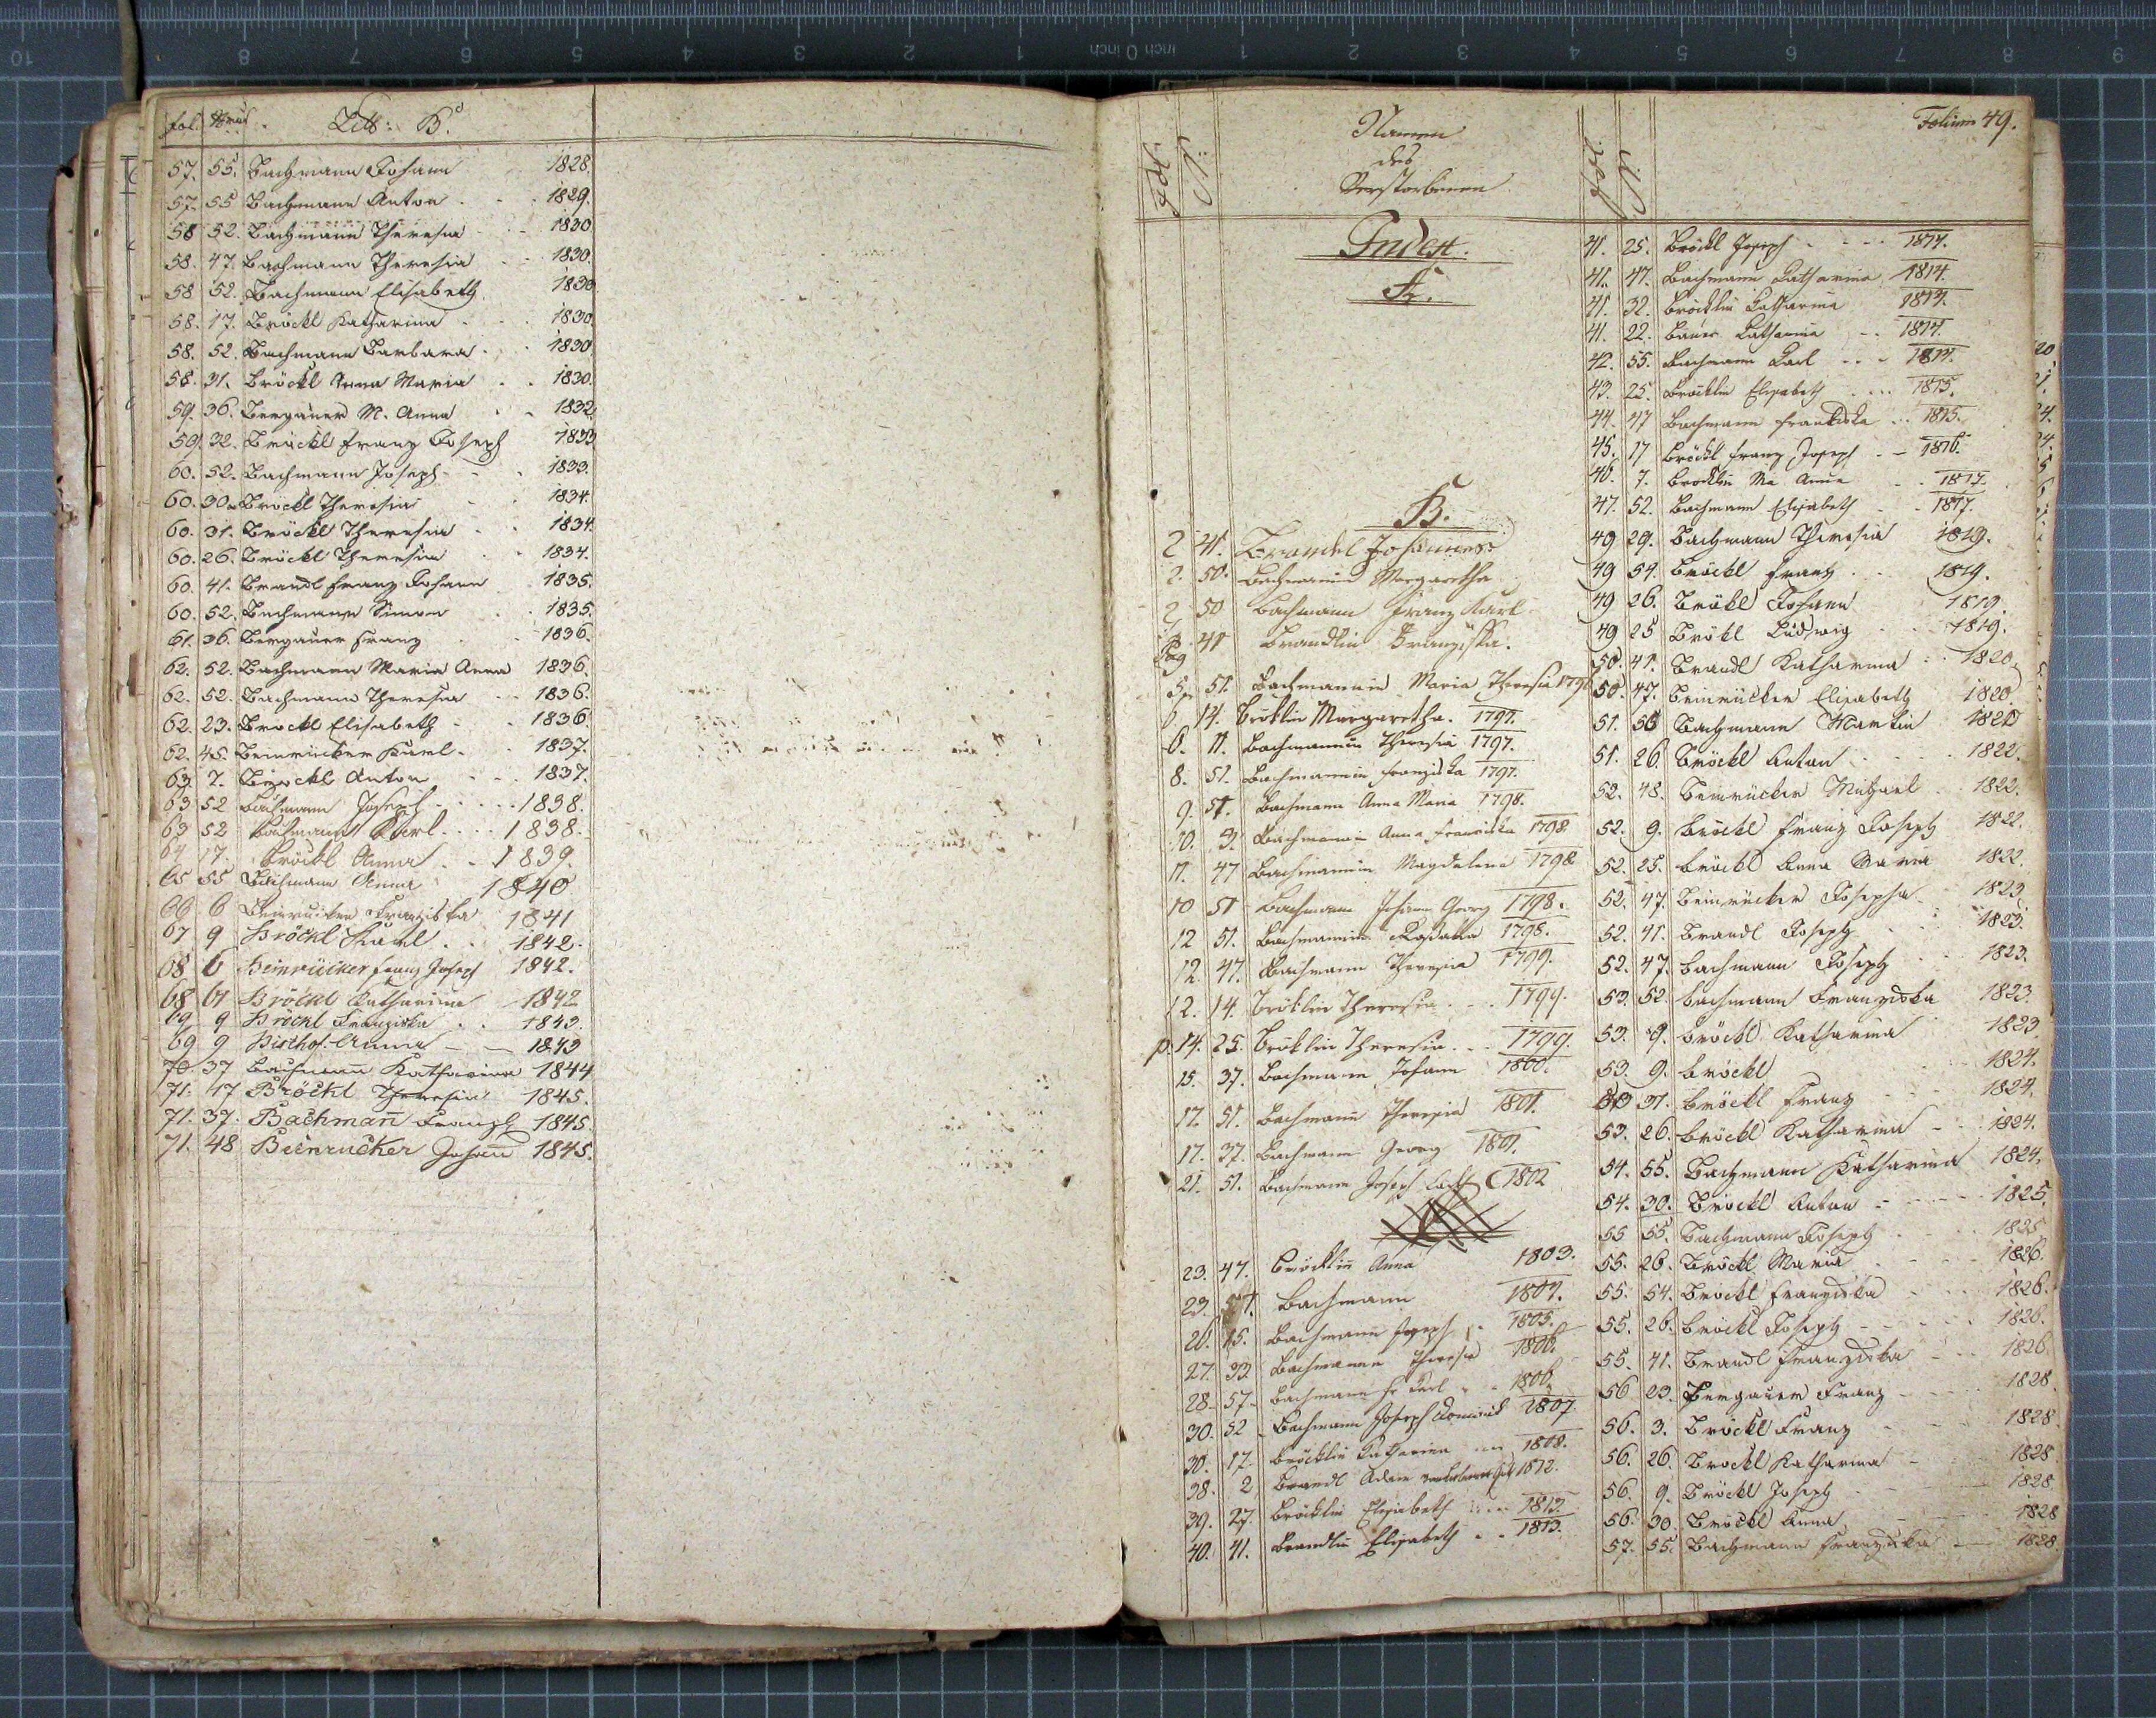 fol. Haus Litt: B.
57. 55. Bachmann Johann 1828.
57. 55 Bachmann Anton 1829.
58 52. Bachmann Theresia 1830
58. 47. Bachmann Theresia 1830.
58 52. Bachmann Elisabeth 1830
58. 17. Bröckl Katharina 1830.
58. 52. Bachmann Barbara 1830
58. 31. Bröckl Anna Maria 1830.
59. 36. Bergauer M. Anna 1832.
59. 32. Bröckl Franz Joseph 1833
60. 52. Bachmann Joseph 1833.
60. 30. Bröckl Theresia 1834.
60. 31. Bröckl Theresia 1834.
60. 26. Bröckl Theresia 1834.
60. 41. Brandl Franz Johann 1835.
60. 52. Bachmann Simon 1835.
61. 36. Bergauer Franz 1836.
62. 52. Bachmann Maria Anna 1836.
62. 52. Bachmann Theresia 1836.
62. 23. Bröckl Elisabeth 1836
62. 45. Beinrücker Karl 1837.
63. 7. Bröckl Anton 1837.
63 52 Bachmann Joseph 1838.
63 52 Bachmann Karl 1838.
64 17. Bröckl Anna 1839.
65 55 Bachmann Anna 1840
66 6 Beinrucker Franziska 1841
67 9 Bröckl Karl 1842.
68 6 Beinrücker Franz Joseph 1842.
68 61 Bröckl Katharina 1842
69 9 Bröckl Franziska 1843.
69 9 Anna 1843
70 37 Bachmañ Katharina 1844
71. 17 Bröckl Theresia 1845.
71. 37. Bachmañ Franz 1845.
71. 48 Beinrucker Johañ 1845.
Folium 49.
Namen
des
Verstorbenen
Fol. N.
Fol. N.
Index.
A.
B.
2 41. Brandel Johannes
2. 50. Bachmannin Margaretha
2 50 Bachmann Franz Karl
41 Brandlin Franziska.
Pag
5. 51. Bachmannin Maria Theresia 1796
6. 14. Bröklin Margaretha. 1797.
6. 11. Bachmannin Theresia 1797.
8. 51. Bachmannin Franziska 1797.
9. 51. Bachmann Anna Maria 1798.
10. 3. Bachmannin Anna Franciska 1798
11. 47 Bachmannin Magdalena 1798
10 51 Bachmann Johann Georg 1798.
12 51. Bachmannin Rosalia 1798.
12 47. Bachmann Theresia 1799.
12. 14. Bröklin Theresia 1799.
p. 14. 25. Bröklin Theresia 1799.
15. 37. Bachmann Johann 1800.
17. 51. Bachmann Theresia 1801.
17. 37. Bachmann Georg 1801.
21. 51. Bachmann Joseph 1802
23. 47. Bröcklin Anna 1803.
23. Bachmann 1804.
26. 15. Bachmann Joseph 1805.
27. 33 Bachmann Theresia 1806.
28. 57. Bachmann Fr Karl 1806
30. 52 Bachmann Joseph Dominik 1807
30. 17. Bröcklin Katharina 1808.
38. 2 Brandl Adam 1812.
39. 27. Bröcklin Elisabeth 1813
40. 41. Brandlin Elisabeth 1813.
41. 25. Bröckl Joseph 1814.
41. 47. Bachmann Catharina 1814.
41. 32. Bröcklin Catharina 1814.
41. 22. Bauer Catharina 1814.
42. 55. Bachmann Carl 1814.
43. 25. Bröcklin Elisabeth 1815.
44. 47 Bachmann Franciska 1815.
45. 17 Bröckl Franz Joseph 1816.
46. 7. Bröcklin Ma Anna 1817.
47. 52. Bachmann Elisabeth 1817.
49 29. Bachmann Theresia 1819.
49 54. Bröckl Franz 1819.
49 26. Brökl Johann 1819.
49 25 Brökl Ludwig 1819.
50. 41. Brandl Katharina 1820.
50. 47. Beinrücker Elisabeth 1820.
51. 56 Bachmann Martin 1820
51. 26. Bröckl Anton 1822.
52. 48. Beinrücker Michael 1822.
52. 9. Bröckl Franz Joseph 1822.
52. 25. Bröckl Anna Maria 1822.
52. 47. Beinrücker Josepha 1823
52. 41. Brandl Joseph 1823.
52. 47. Bachmann Joseph 1823.
53. 52. Bachmann Franziska 1823.
53. 9. Bröckl Katharina 1823
53. 9. Bröckl 1824.
53 31. Bröckl Franz 1824.
53. 26. Bröckl Katharina 1824.
54. 55. Bachmann Katharina 1824.
54. 30. Bröckl Anton 1825.
55 55. Bachmann Joseph 1825
55. 26. Bröckl Maria 1826.
55. 54. Bröckl Franziska 1826.
55. 26. Bröckl Joseph 1826.
55. 41. Brandl Franziska 1826.
56 23. Bergauer Franz 1828
56. 3. Bröckl Franz 1828
56. 26. Bröckl Katharina 1828
56. 9. Bröckl Joseph 1828
56. 30. Bröckl Anna 1828
57. 55. Bachmann Franziska 1828.